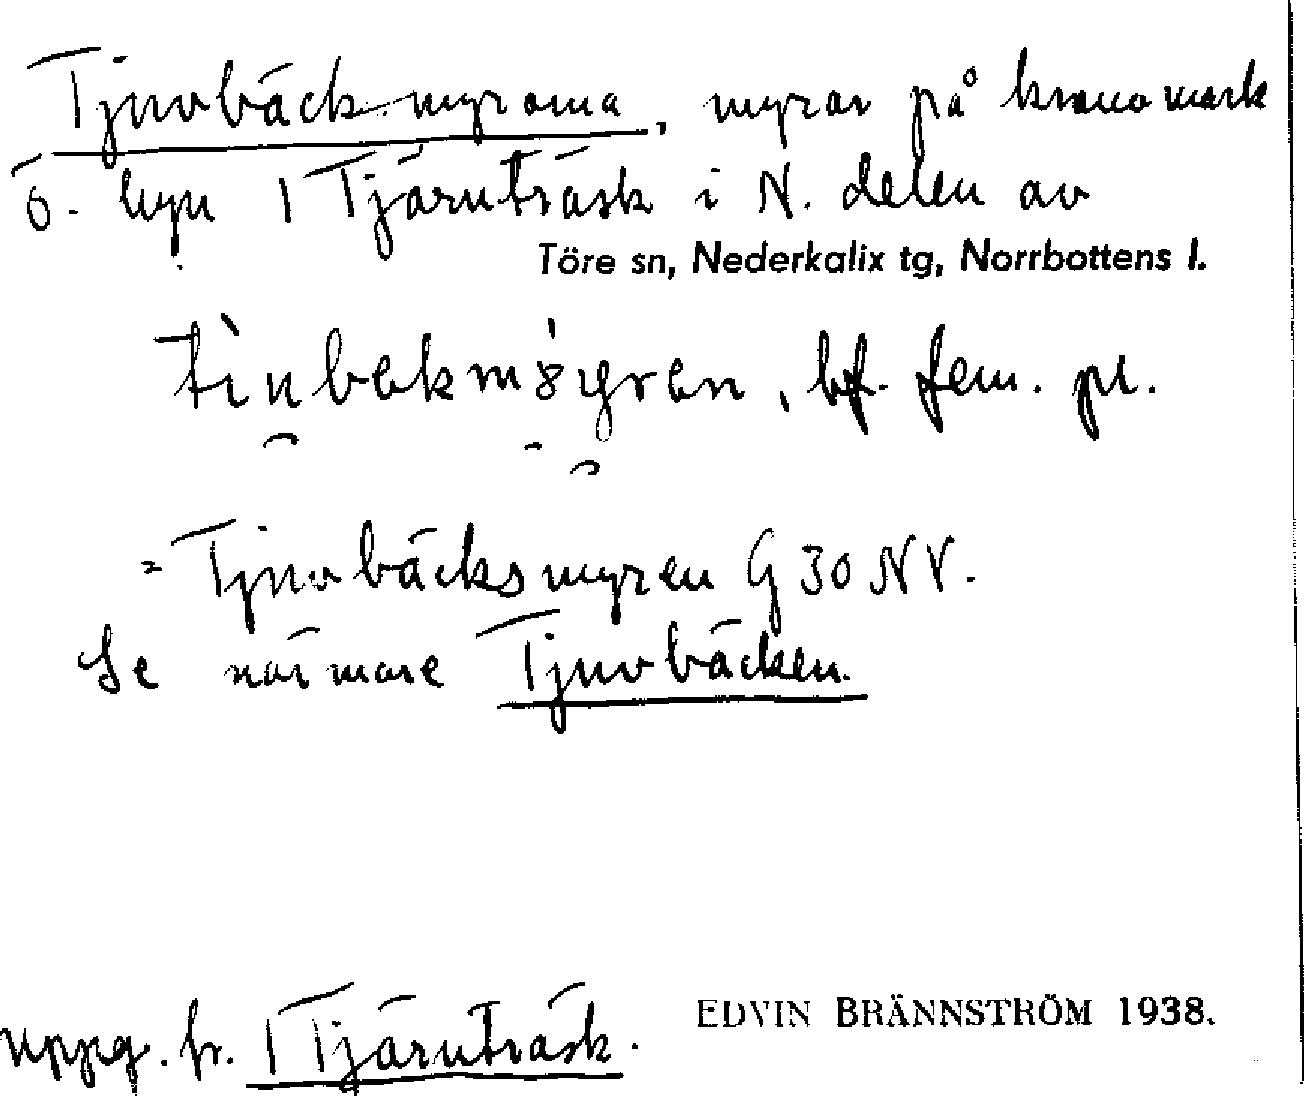 Tjuvbäckmyrorna, myrar på kronomark
ö. byn 1 Tjärnträsk i N. delen av
Töre sn, Nederkalix tg, Norrbottens l.
bf. fem. pl.
= Tjuvbäcksmyren G 30 NV.
Se närmare Tjuvbäcken.
uppg. fr. 1 Tjärnträsk.
EDVIN BRÄNNSTRÖM 1938.